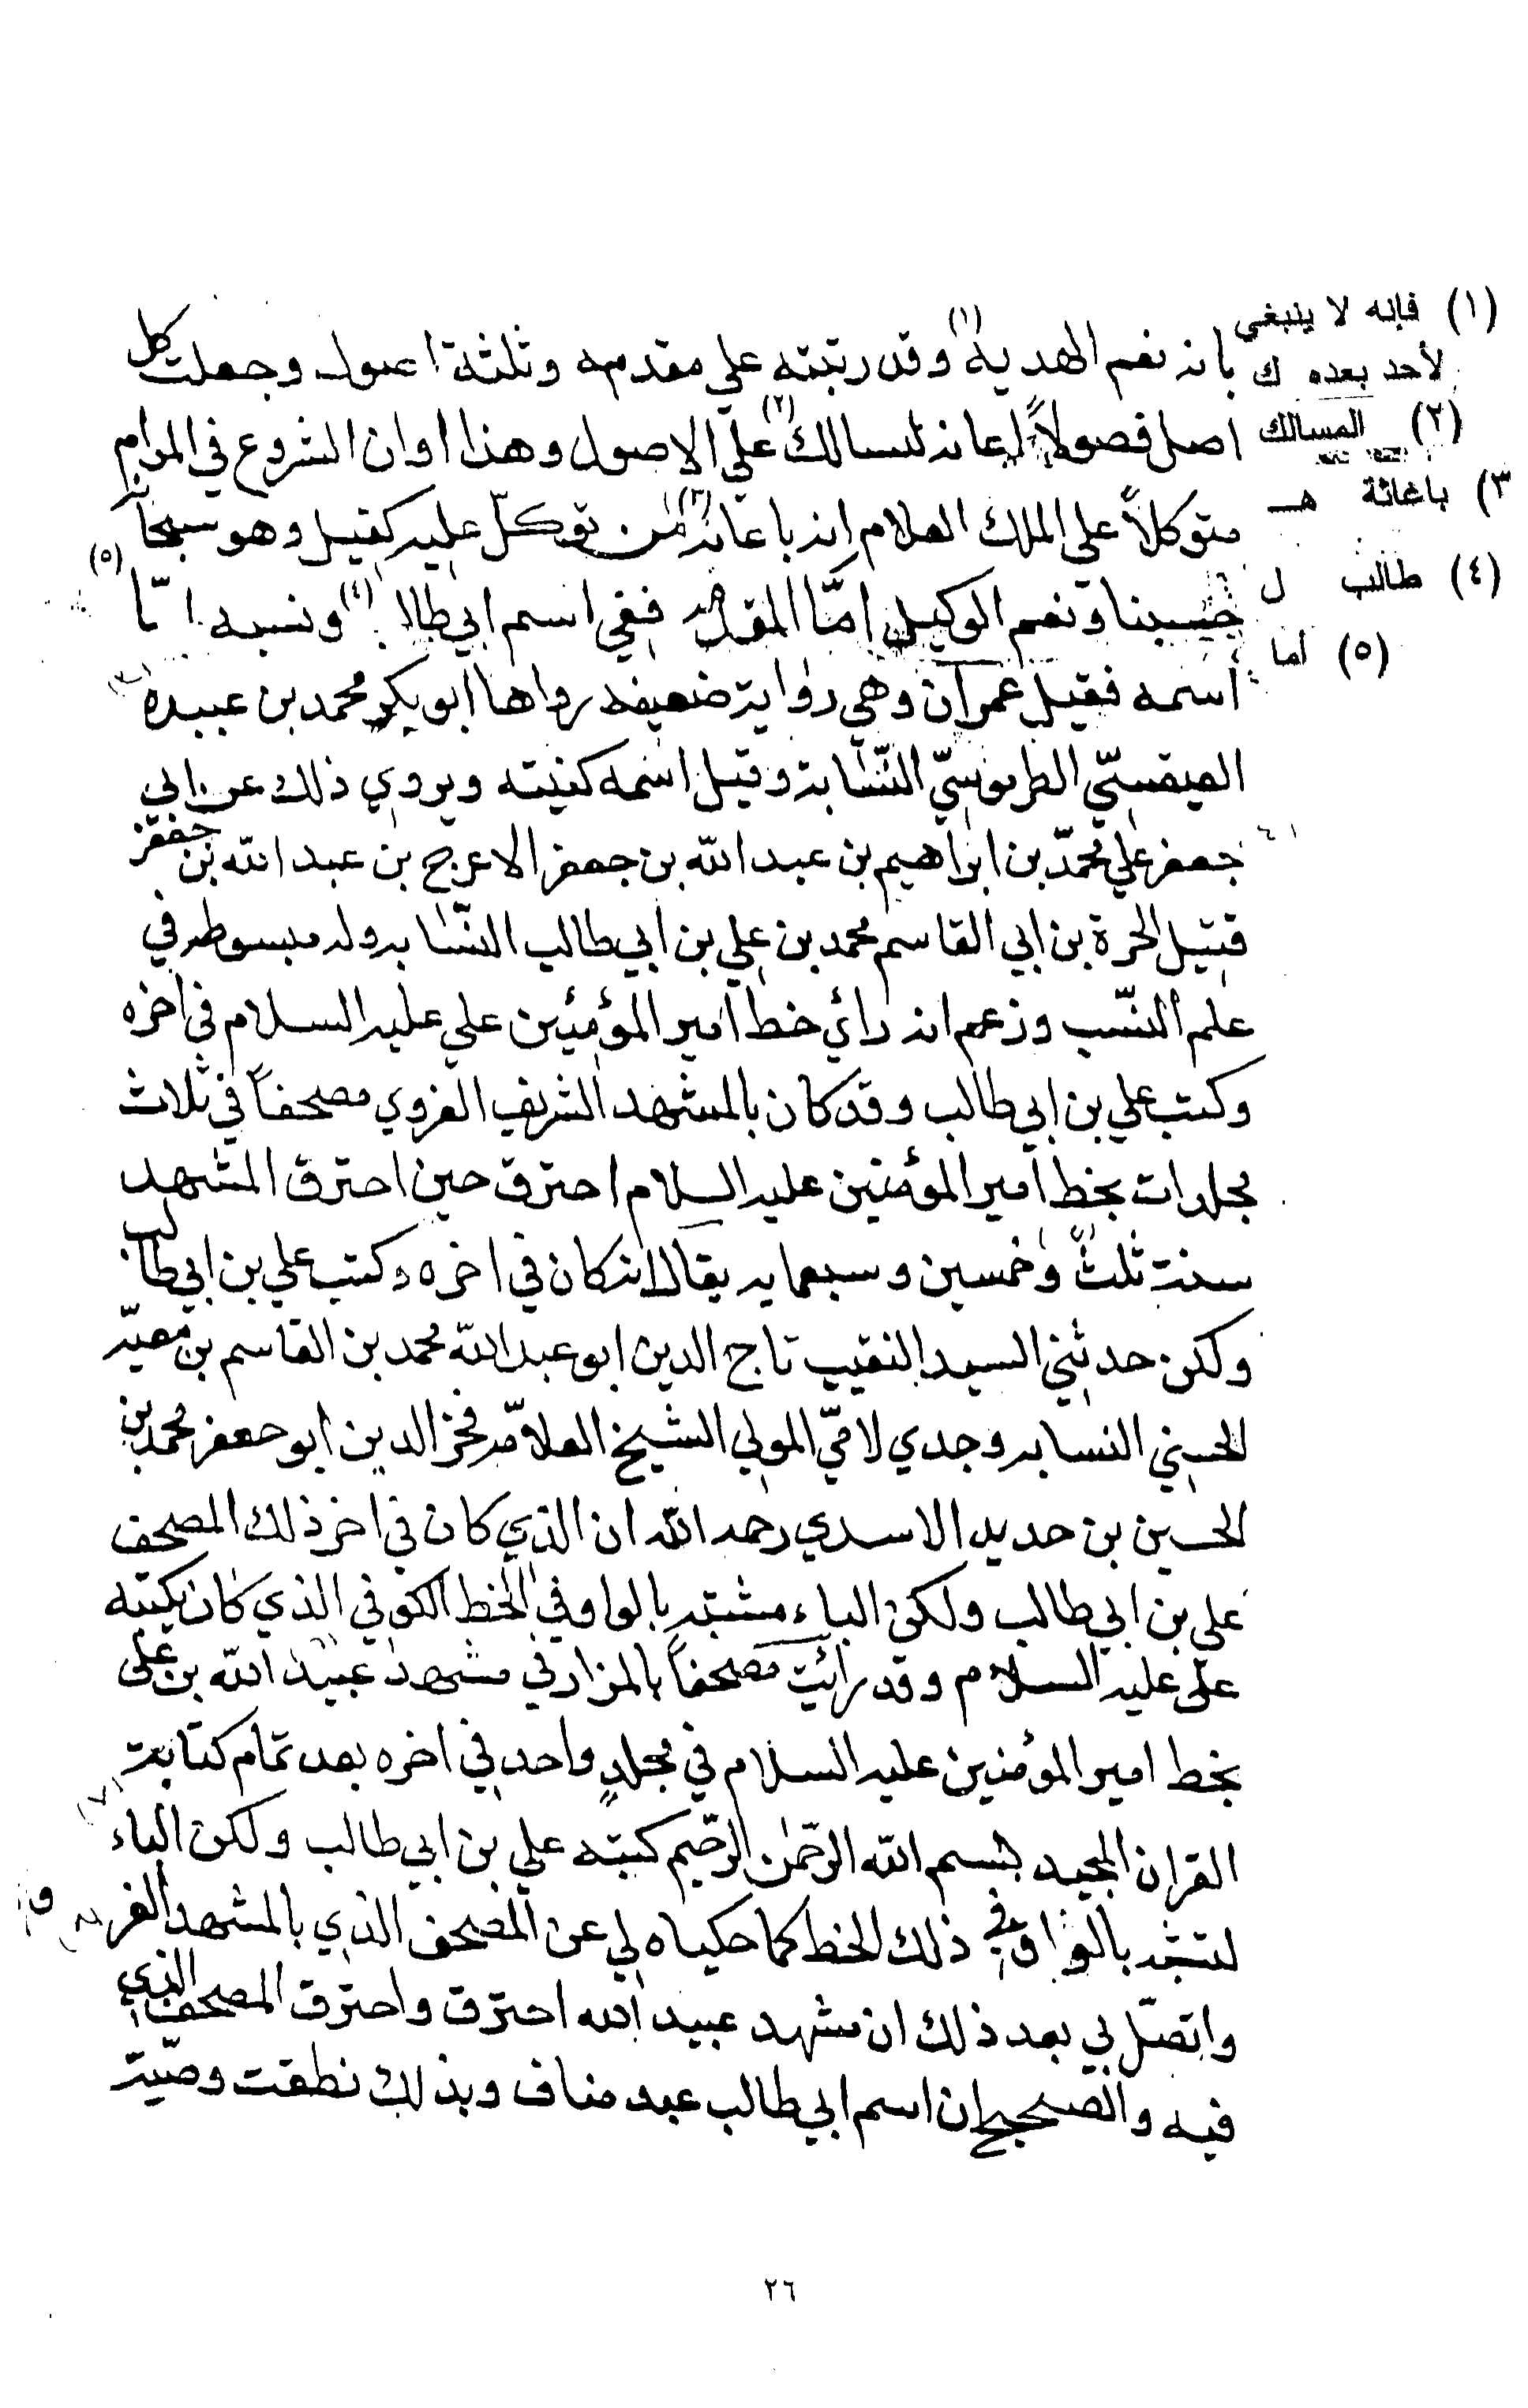 بانه نعم الهدية (١) وقد رتبته علي مقدمه وثلثة اصول وجعلت كل
اصل فصولاً اعانه للسالك (٢) علي الاصول وهذا اوان الشروع في المرام
متوكلاً علي الملك العلام انه باعانة (٣) من توكل عليه كفيل وهو سبحانه
حسبنا ونعم الوكيل امّا المقدمه ففي اسم ابي طالب (٤) ونسبه امّا (٥)
اسمه فقيل عمران وهي رواية ضعيفه رواها ابو بكر محمد بن عبيده
العبقسيّ الطرسوسيّ النّسّابة وقيل اسمه كنيته ويروي ذلك عن ابي
جعفر علي محمّد بن ابراهيم بن عبد الله بن جعفر الاعرج بن عبد الله بن جعفر
قتيل الحرة بن ابي القاسم محمد بن علي بن ابي طالب النسّابه وله مبسوطه في
علم النّسب وزعم انه رائي خط امير المؤمنين علي عليه السلام في اخره
وكتب علي بن ابي طالب وقد كان بالمشهد الشريف الغروي مصحفاً في ثلاث
مجلدات بخط امير المؤمنين عليه السلام احترق حين احترق المشهد
سنة ثلث وخمسين وسبعمايه يقال انه كان في اخره وكتب علي بن ابي طالب
ولكن حدثني السيد النقيب تاج الدين ابو عبد الله محمد بن القاسم بن معيّه
الحسني النسابه وجدي لامّي المولي الشيخ العلامّه فخر الدين ابو جعفر محمد بن
الحسين بن حديد الاسدي رحمه الله ان الذي كان في اخر ذلك المصحف
علي بن ابي طالب ولكن الباء مشتبه بالواو في الخط الكوفي الذي كان يكتبه
علي عليه السلام وقد رائيت مصحفاً بالمزار في مشهد عبيد الله بن علي
بخط امير المؤمنين عليه السلام في مجلدٍ واحد في اخره بعد تمام كتابة
القران المجيد بسم الله الرّحمٰن الرّحيم كتبه علي بن ابي طالب ولكن الباء
لتشبه بالواو في ذلك الخط كما حكياه لي عن المصحف الذي بالمشهد الغروي
واتصّل بي بعد ذلك ان مشهد عبيد الله احترق واحترق المصحف الذي
فيه والصحيح ان اسم ابي طالب عبد مناف وبذلك نطقت وصّية
(١) فإنه لا ينبغي
لأحد بعده ك
(٢) المسالك
(٣) باغاثة هـ
(٤) طالب ل
(٥) أما
٢٦